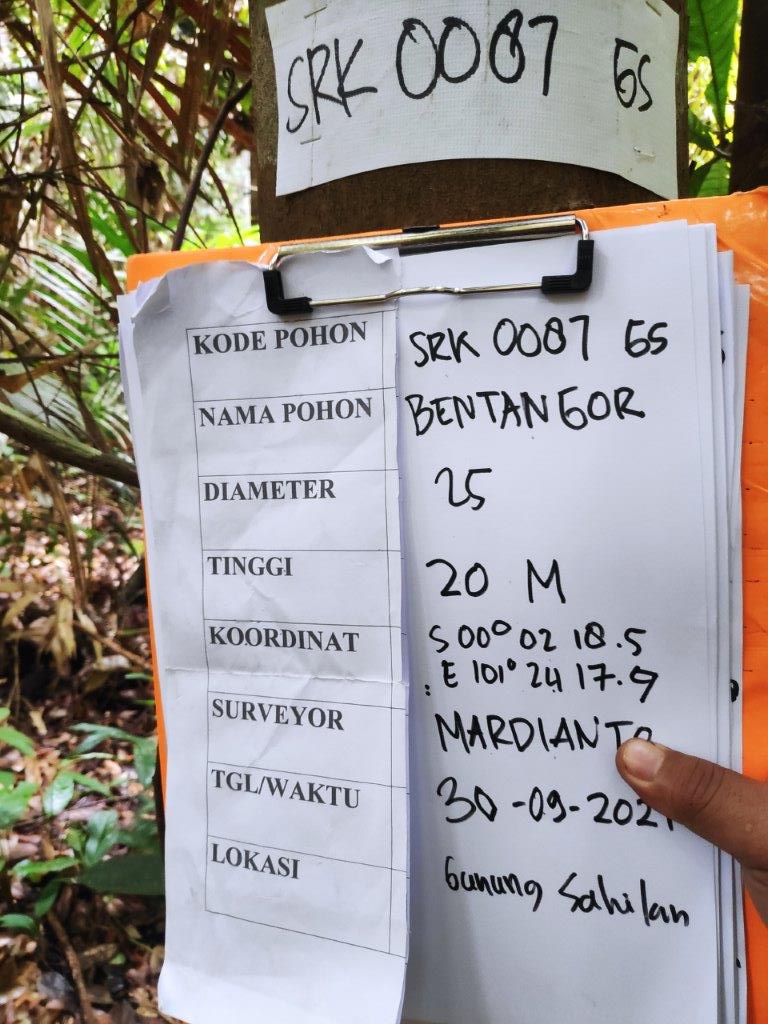 SRK 0087 GS
KODE POHON SRK 0087 GS
NAMA POHON BENTANGOR
DIAMETER 25
TINGGI 20 M
KOORDINAT S 00° 02 18.5
: E 101° 24 17.9
SURVEYOR MARDIANTO
TGL/WAKTU 30-09-2021
LOKASI Gunung Sahilan